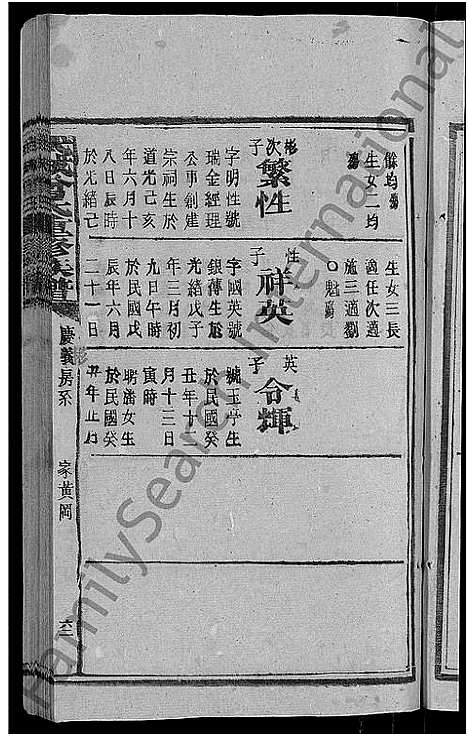 餘均殤
生女二均
殤
彬次子
繁性
字明性號
瑞金經理
公事創建
宗祠生於
道光己亥
年六月十
八日辰時
於光緒己
生女三長
適任次適
施三適劉
○魁殤
性子
祥英
字國英號
銀傳生於
光緒戊子
年三月初
九日午時
於民國戊
辰年六月
二十一日
英子
令輝
號玉亭生
於民國癸
丑年十一
月十三日
寅時
聘潘女生
於民國癸
丑年正月
重修族譜
慶義房系
家黃岡
六二
FamilySearch International